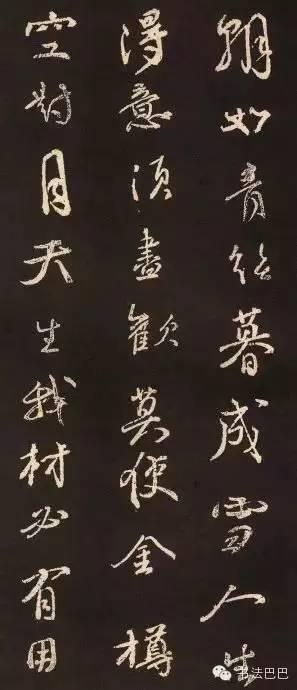 朝如青絲暮成雪人生
得意須盡歡莫使金樽
空對月天生我材必有用
书法巴巴